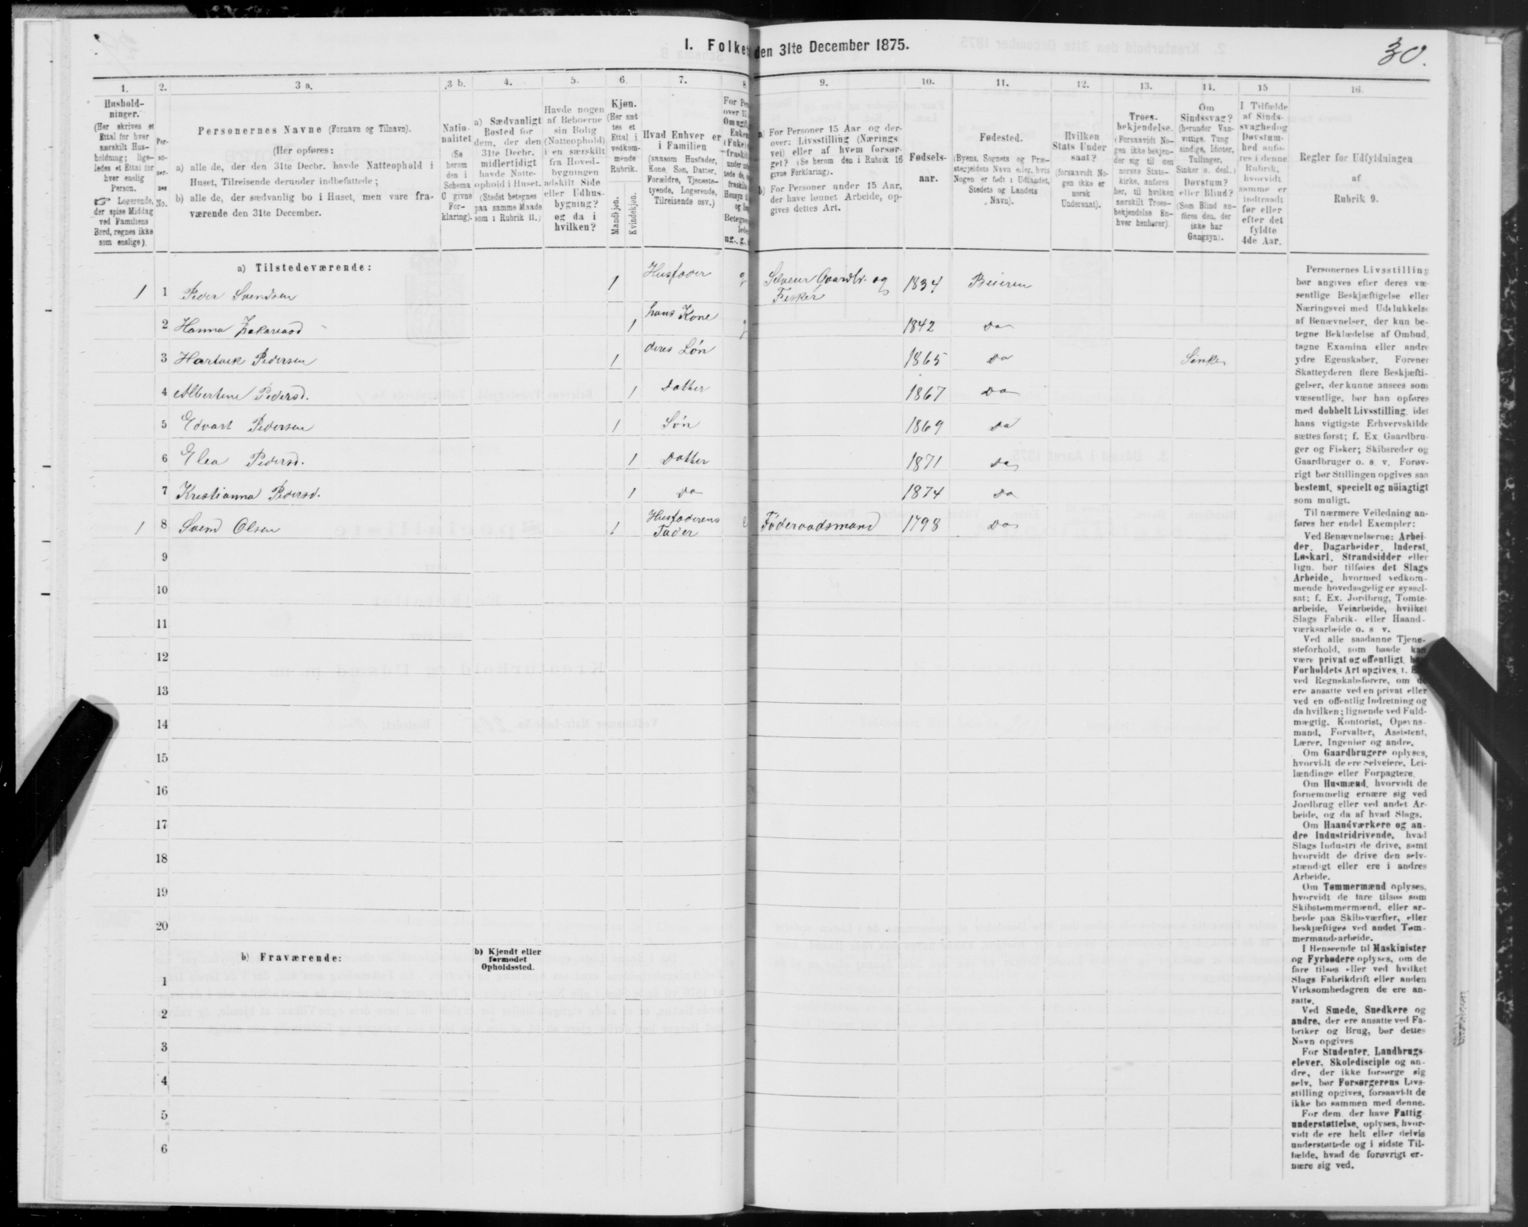 I. Folke den 31te December 1875.
30.
1. 2. 3 a. 3 b. 4. 5. 6. 7. 8 9. 10. 11. 12. 13. 14. 15 16.
Hushold-
ninger.
(Her skrives et
Ettal for hver
særskilt Hus-
holdning; lige-
ledes et Ettal for
hver enslig
Person.
☞ Logerende,
der spise Middag
ved Familiens
Bord, regnes ikke
som enslige).
Per-
so-
ner-
nes
No.
Personernes Navne (Fornavn og Tilnavn).
(Her opføres:
a) alle de, der den 31te Decbr. havde Natteophold i
Huset, Tilreisende derunder indbefattede;
b) alle de, der sædvanlig bo i Huset, men vare fra-
værende den 31te December.
Natio-
nalitet
(Se
herom
den i
Schema
C givne
For-
klaring).
a) Sædvanligt
Bosted for
dem, der den
31te Decbr.
midlertidigt
havde Natte-
ophold i Huset.
(Stedet betegnes
paa samme Maade
som i Rubrik 11.)
Havde nogen
af Beboerne
sin Bolig
(Natteophold)
i en særskilt
fra Hoved-
bygningen
adskilt Side
eller Udhus-
bygning?
og da i
hvilken?
Kjøn.
(Her sæt
tes et
Ettal i
vedkom-
mende
Rubrik.
Mandkjøn.
Kvindekjøn.
Hvad Enhver er
i Familien
(saasom Husfader,
Kone, Søn, Datter,
Forældre, Tjeneste-
tyende, Logerende,
Tilreisende osv.)
a) For Personer 15 Aar og der-
over: Livsstilling (Nærings
vei) eller af hvem forsør-
get? (Se herom den i Rubrik 16
givne Forklaring).
b) For Personer under 15 Aar,
der have lønnet Arbeide, op-
gives dettes Art.
Fødsels-
aar.
Fødested.
(Byens, Sognets og Præ-
stegjeldets Navn eller, hvis
Nogen er født i Udlandet,
Stedets og Landets
Navn).
Hvilken
Stats Under
saat?
(forsaavidt No-
gen ikke er
norsk
Undersaat).
Troes-
bekjendelse.
(Forsaavidt No-
gen ikke bekjen-
der sig til den
norske Stats-
kirke, anføres
her, til hvilken
særskilt Troes-
bekjendelse En-
hver henhører).
Om
Sindssvag?
(herunder Van-
vittige, Tung
sindige, Idioter,
Tullinger,
Sinker o. desl.)
Døvstum?
eller Blind?
(Som Blind an-
føres den, der
ikke har
Gangsyn).
I Tilfælde
af Sinds-
svaghed og
Døvstum-
hed anfø-
res i denne
Rubrik,
hvorvidt
samme er
indtraadt
før eller
efter det
fyldte
4de Aar.
Regler for Udfyldningen
af
Rubrik 9.
a) Tilstedeværende:
1 1 Peder Svendsen 1 Husfader g Selveier Gaardbr. og Fisker 1834 Beieren
2 Hanna Zakariasd 1 hans Kone g 1842 Do
3 Hartvik Pedersen 1 deres Søn 1865 Do Sinke
4 Albertine Pedersd. 1 Datter 1867 Do
5 Edvart Pedersen 1 Søn 1869 Do
6 Elea Pedersd. 1 Datter 1871 Do
7 Kristianna Pedersd. 1 Do 1874 Do
1 8 Svend Olsen 1 Husfaderens Fader E Föderaadsmand 1798 Do
9
10
11
12
13
14
15
16
17
18
19
20
b) Fraværende:
b) Kjendt eller
formodet
Opholdssted.
1
2
3
4
5
6
Personernes Livsstilling
bør angives efter deres væ-
sentlige Beskjæftigelse eller
Næringsvei med Udelukkelse
af Benævnelser, der kun be-
tegne Beklædelse af Ombud,
tagne Examina eller andre
ydre Egenskaber. Forener
Skatteyderen flere Beskjæfti-
gelser, der kunne ansees som
væsentlige, bør han opføres
med dobbelt Livsstilling, idet
hans vigtigste Erhvervskilde
sættes først; f. Ex. Gaardbru-
ger og Fisker; Skibsreder og
Gaardbruger o. s. v. Forøv-
rigt bør Stillingen opgives saa
bestemt, specielt og nöiagtigt
som muligt.
Til nærmere Veiledning an-
føres her endel Exempler:
Ved Benævnelserne: Arbei-
der, Dagarbeider, Inderst,
Løskarl, Strandsidder eller
lign. bør tilføies det Slags
Arbeide, hvormed vedkom-
mende hovedsagelig er syssel-
sat; f. Ex. Jordbrug, Tomte-
arbeide, Veiarbeide, hvilket
Slags Fabrik- eller Haand-
værksarbeide o. s. v.
Ved alle saadanne Tjene-
steforhold, som baade kan
være privat og offentligt,
Forholdets Art opgives,
ved Regnskabsførere, om de
ere ansatte ved en privat eller
ved en offentlig Indretning og
da hvilken; lignende ved Fuld-
mægtig, Kontorist, Opsyns-
mand, Forvalter, Assistent,
Lærer, Ingeniør og andre.
Om Gaardbrugere oplyses,
hvorvidt de ere Selveiere, Lei-
lændinge eller Forpagtere.
Om Husmænd, hvorvidt de
fornemmelig ernære sig ved
Jordbrug eller ved andet Ar-
beide, og da af hvad Slags.
Om Haandværkere og an-
dre Industridrivende, hvad
Slags Industri de drive, samt
hvorvidt de drive den selv-
stændigt eller ere i andres
Arbeide.
Om Tømmermænd oplyses,
hvorvidt de fare tilsøs som
Skibstømmermænd, eller ar-
beide paa Skibsværfter, eller
beskjæftiges ved andet Tøm-
mermandsarbeide.
I Henseende til Maskinister
og Fyrbødere oplyses, om de
fare tilsøs eller ved hvilket
Slags Fabrikdrift eller anden
Virksomhedsgren de ere an-
satte.
Ved Smede, Snedkere og
andre, der ere ansatte ved Fa-
briker og Brug, bør dettes
Navn opgives
For Studenter, Landbrugs-
elever, Skoledisciple og an-
dre, der ikke forsørge sig
selv, bør Forsørgerens Livs-
stilling opgives, forsaavidt de
ikke bo sammen med denne.
For dem, der have Fattig-
understøttelse, oplyses, hvor-
vidt de ere helt eller delvis
understøttede og i sidste Til-
fælde, hvad de forøvrigt er-
nære sig ved.